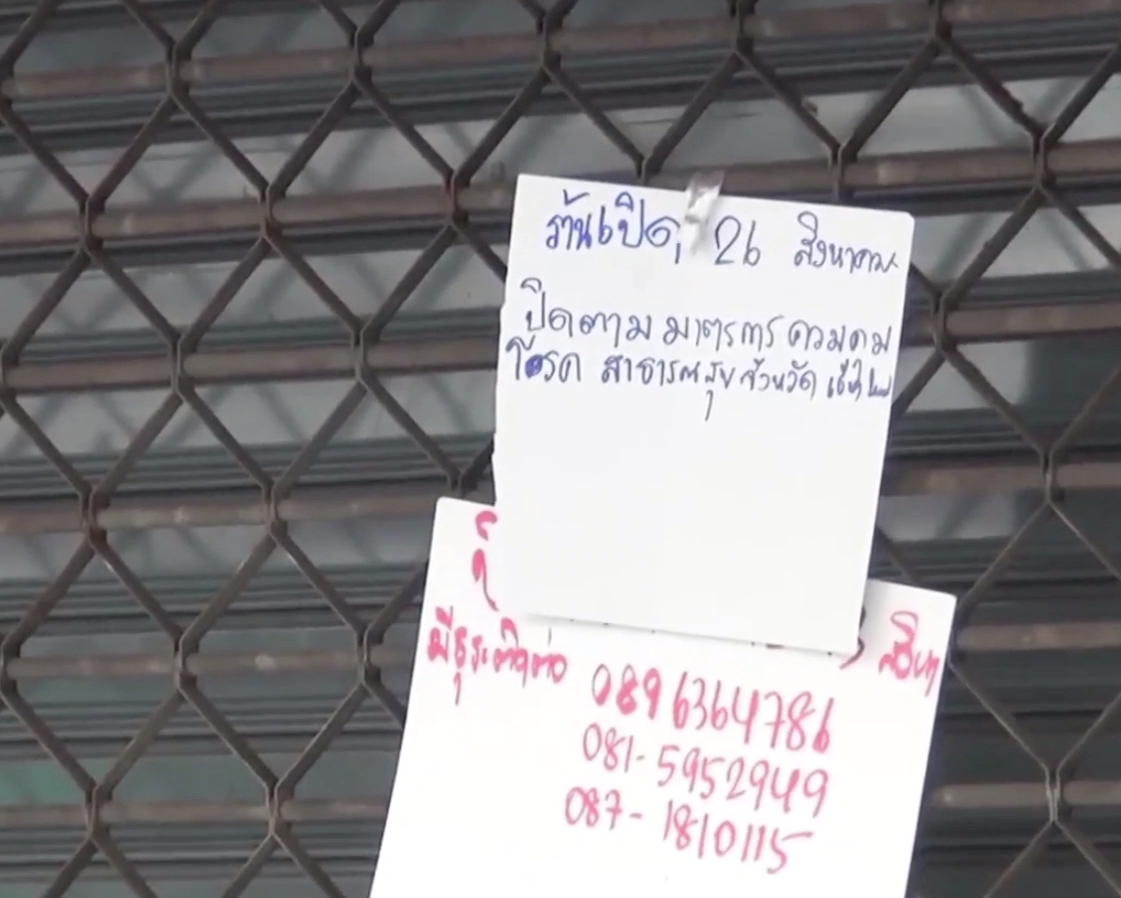 ร้านเปิด 26 สิงหาคม
ปิดตามมาตรการ ควมคุม
โรค สาธารณสุขจังหวัด เชียงใหม่
มีธุระติดต่อ 0896364786
081-5952949
087-1810115